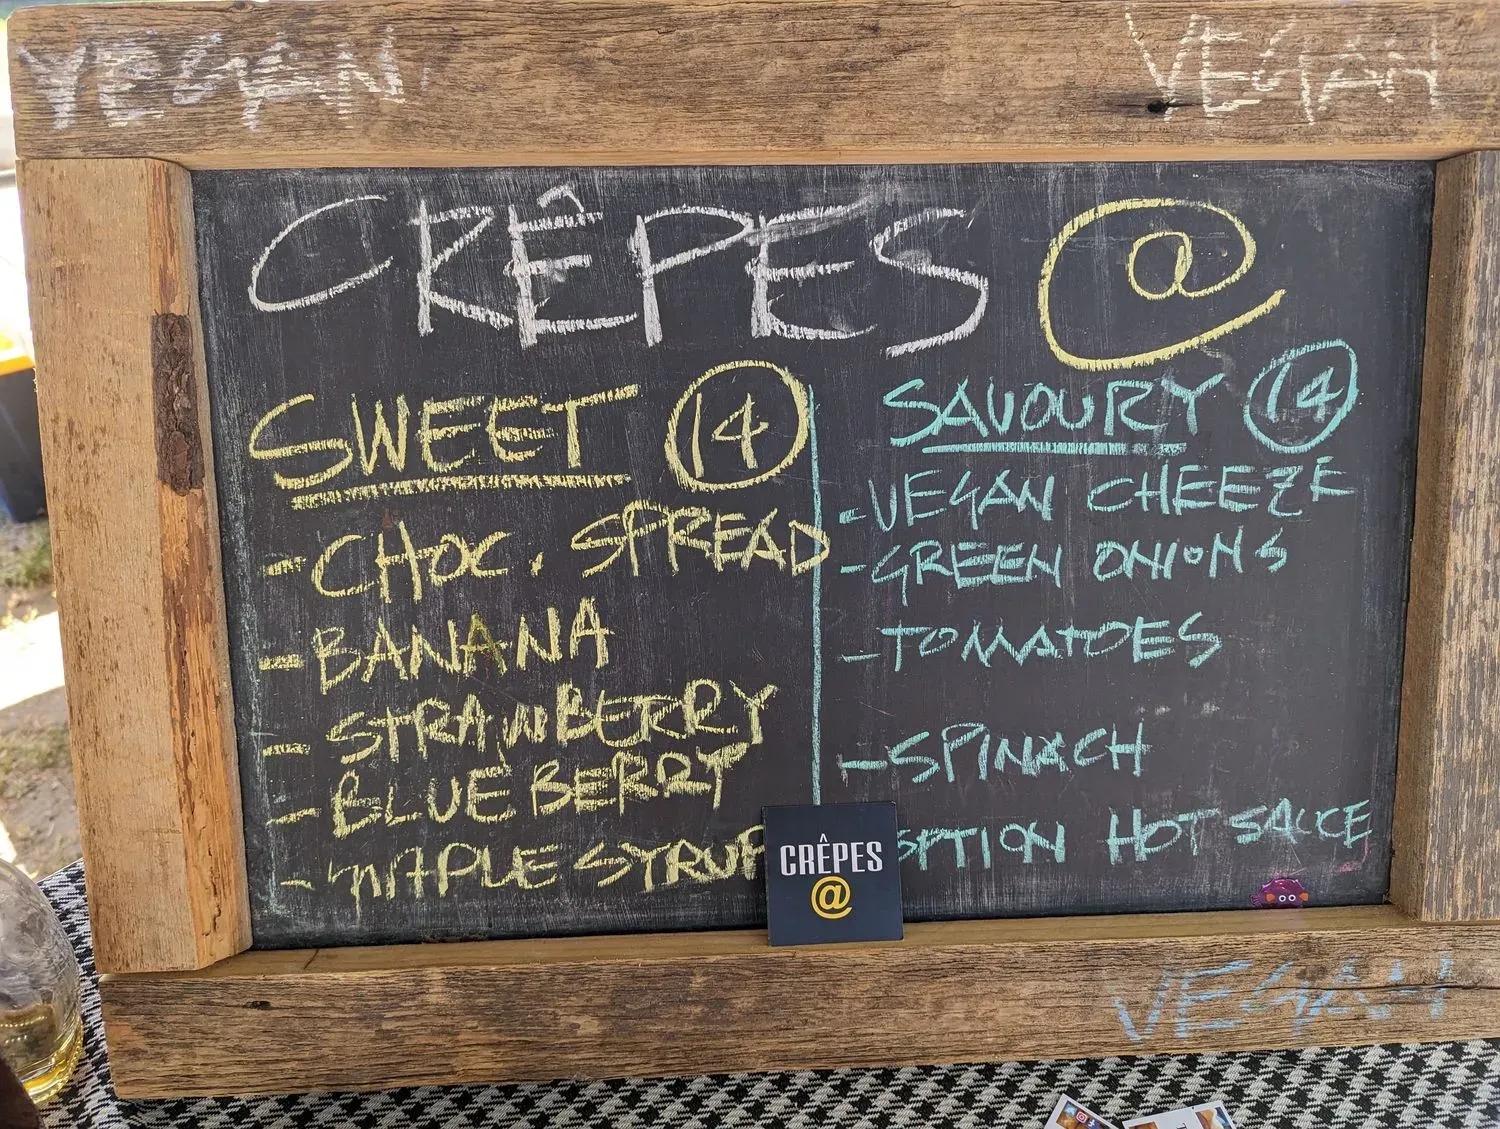 VEGAN
VEGAN
CRÊPES @
SWEET 14
- CHOC. SPREAD
- BANANA
- STRAWBERRY
- BLUEBERRY
- MAPLE SYRUP
SAVOURY 14
- VEGAN CHEEZE
- GREEN ONIONS
- TOMATOES
- SPINACH
OPTION HOT SAUCE
CRÊPES
@
VEGAN